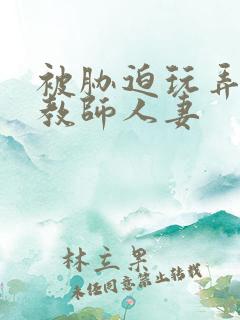 被胁迫玩弄
教师人妻
林立果
未经同意禁止转载